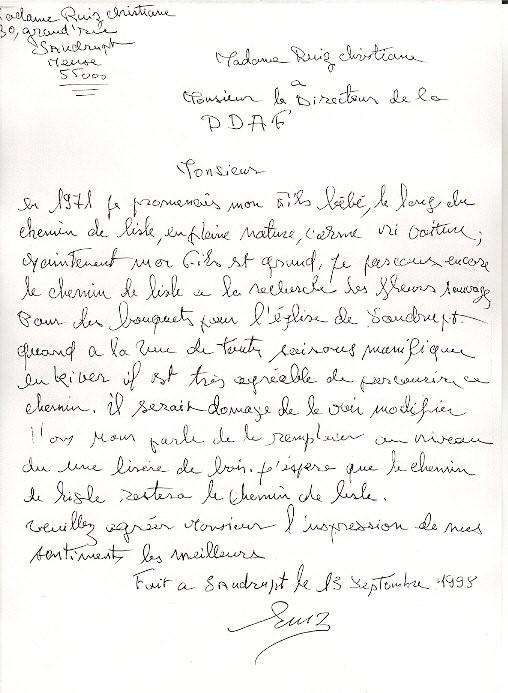 Madame Ruiz Christiane
30, grand'rue
Saudrupt
Meuse
55000
Madame Ruiz Christiane
a
Monsieur le Directeur de la
DDAF
Monsieur
en 1971 je promenais mon fils bébé, le long du
chemin de lisle, en pleine nature, calme ni voiture;
Maintenent mon fils est grand, je parcours encore
le chemin de lisle a la recherche des fleurs sauvages
Pour des bouquets pour l'église de Saudrupt.
quand a la vue de toute saisons manifique
en hiver il est très agréable de parcourire ce
chemin. il serait domage de le voir modifier
l'on nous parle de le remplacer au niveau
du une lisère de bois. j'éspère que le chemin
de lisle restera le chemin de lisle.
veuillez agréer Monsieur l'inspression de mes
sentiments les meilleurs
Fait a Saudrupt le 15 Septembre 1998
Ruiz